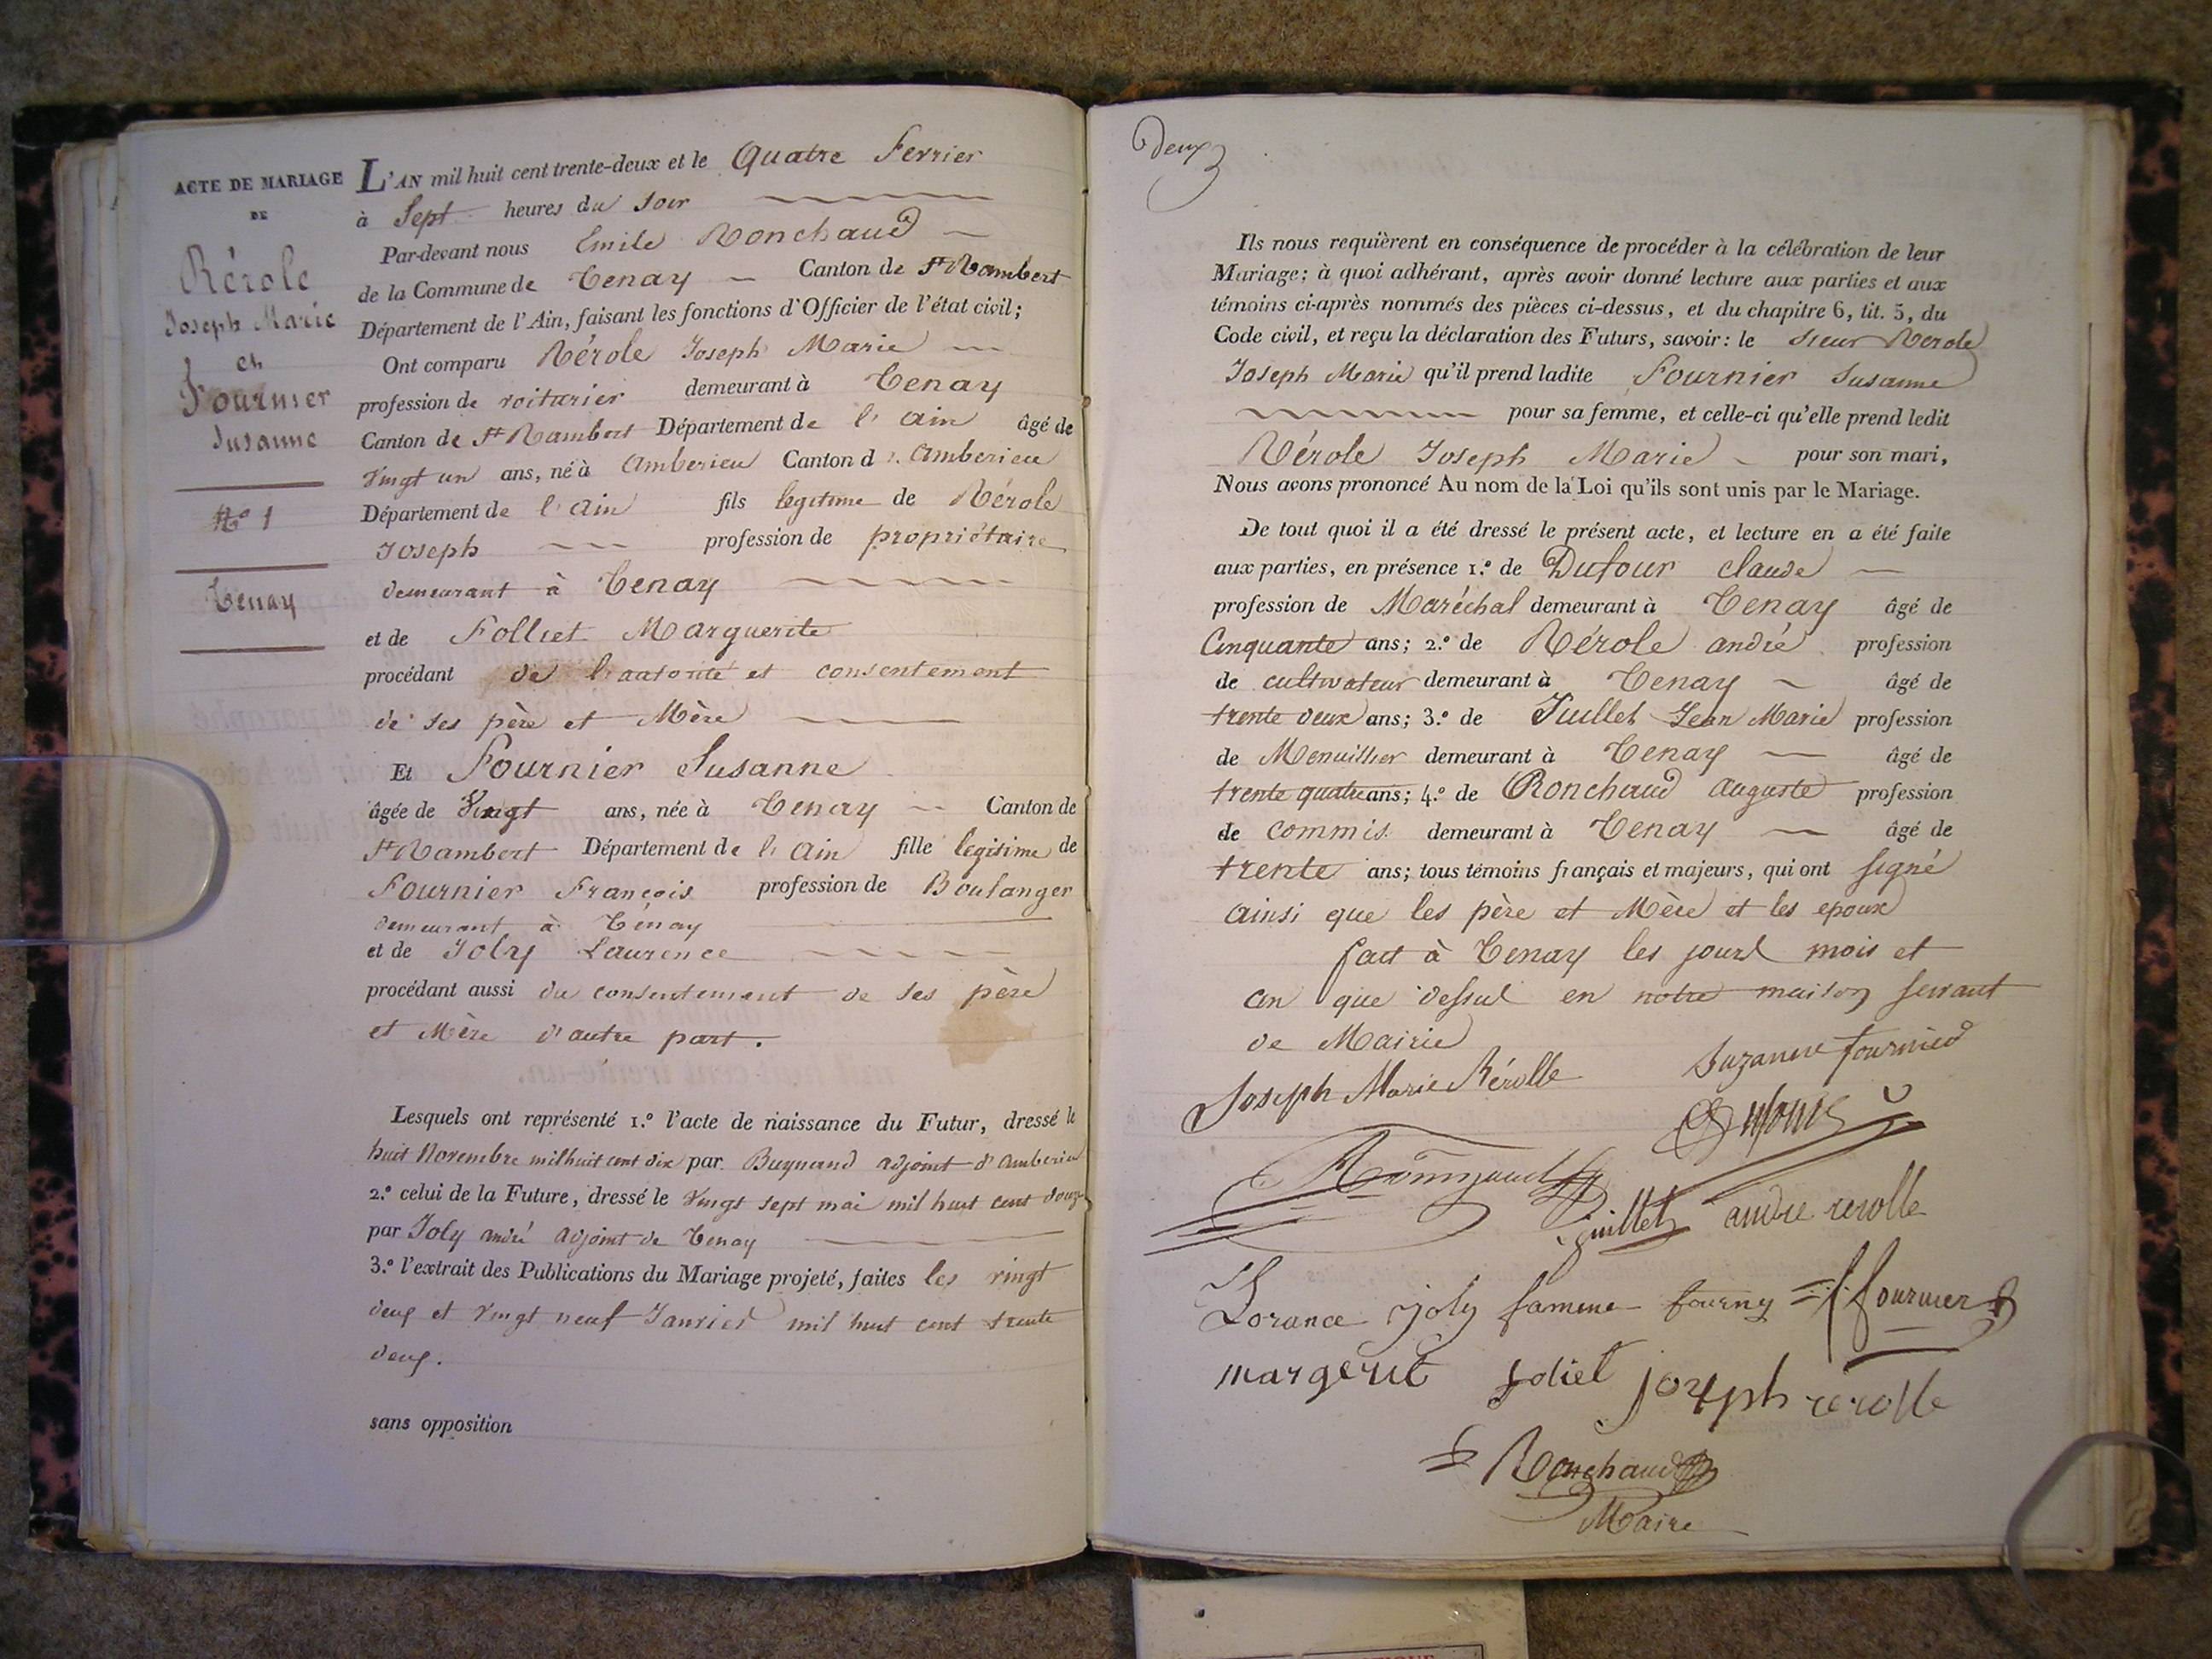 ACTE DE MARIAGE
DE
Rérole
Joseph Marie
et
Fournier
Susanne
N.o 1
Tenay
L'AN mil huit cent trente-deux et le Quatre Fevrier
à Sept heures du soir
Par-devant nous Emile Ronchaud
de la Commune de Tenay Canton de St Rambert
Département de l'Ain, faisant les fonctions d'Officier de l'état civil;
Ont comparu Rérole Joseph Marie
profession de voiturier demeurant à Tenay
Canton de St Rambert Département de l'ain âgé de
vingt un ans, né à Amberieu Canton d'Amberieu
Département de l'ain fils legitime de Rérole
Joseph profession de propriétaire
demeurant à Tenay
et de Folliet Marguerite
procédant de l'autorité et consentement
de ses père et Mère
Et Fournier Susanne
âgée de Vingt ans, née à Tenay Canton de
St Rambert Département de l'Ain fille legitime de
Fournier François profession de Boulanger
demeurant à Ténay
et de Joly Laurence
procédant aussi du consentement de ses père
et Mère d'autre part.
Lesquels ont représenté 1.º l'acte de naissance du Futur, dressé le
huit Novembre mil huit cent dix par adjoint d'amberieu
2.º celui de la Future, dressé le vingt sept mai mil huit cent douze
par Joly andré adjoint de Tenay
3.º l'extrait des Publications du Mariage projeté, faites les vingt
deux et vingt neuf Janvier mil huit cent trente
deux.
sans opposition
Deux
Ils nous requièrent en conséquence de procéder à la célébration de leur
Mariage; à quoi adhérant, après avoir donné lecture aux parties et aux
témoins ci-après nommés des pièces ci-dessus, et du chapitre 6, tit. 5, du
Code civil, et reçu la déclaration des Futurs, savoir: le sieur Rerole
Joseph Marie qu'il prend ladite Fournier Susanne
pour sa femme, et celle-ci qu'elle prend ledit
Rérole Joseph Marie pour son mari,
Nous avons prononcé Au nom de la Loi qu'ils sont unis par le Mariage.
De tout quoi il a été dressé le présent acte, et lecture en a été faite
aux parties, en présence 1.º de Dufour claude
profession de Maréchal demeurant à Tenay âgé de
Cinquante ans; 2.º de Rérole andré profession
de cultivateur demeurant à Tenay âgé de
trente deux ans; 3.º de Juillet Jean Marie profession
de Menuillier demeurant à Tenay âgé de
trente quatre ans; 4.º de Ronchaud auguste profession
de commis demeurant à Tenay âgé de
trente ans; tous témoins français et majeurs, qui ont signé
ainsi que les père et Mère et les epoux
fait à Tenay les jours mois et
an que dessus en notre maison servant
de Mairie
Joseph Marie Rérolle Suzanne fournier
Dufour
juillet andre rerolle
Lorance joly famme fourny fournier
margerit foliet joseph rerolle
Ronchaud
Maire